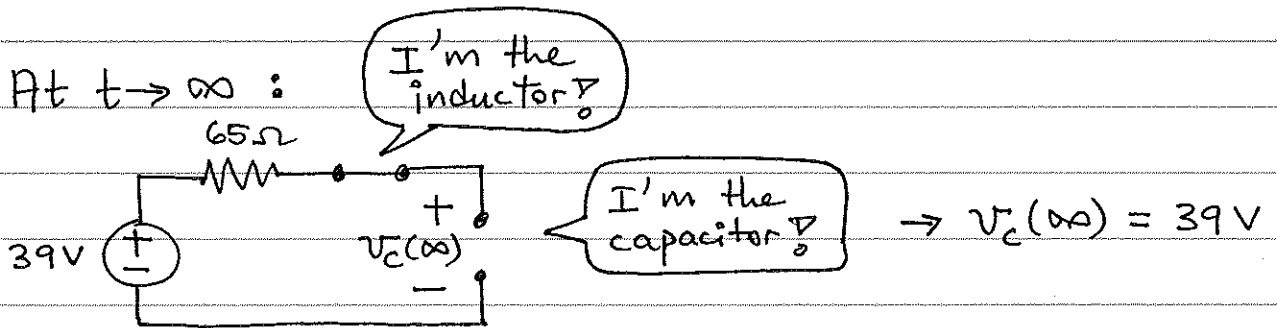 At t→∞ :
I'm the
inductor!
65Ω
39V
+
-
+
v_c(∞)
-
I'm the
capacitor!
→ v_c(∞) = 39 V